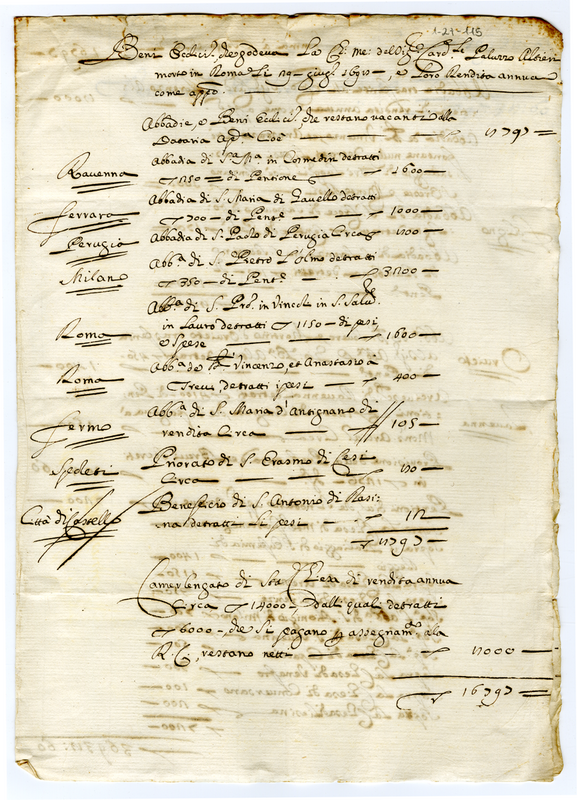 1-21-115
Beni Eccl.ci, che godeva La Ch: me: dell' Card.le Paluzzo Altieri
morto in Roma Li 29 giug.o 1698, e Loro Rendita annua
come app.o
Abbadie, e Beni Eccl.ci, che restano vacanti alla
Dataria Ap.ca Cioè
Abbadia di S.a M.a in Cosmedin detratti
Ravenna 1250 di Pentione 1600
Abbadia di S. Maria di Gavello detratti
Ferrara 700 di Pent.e 1000
Perugia Abbadia di S. Paolo di Perugia Circa
Abb.a di S. Pietro L'olmo detratti
Milano 350 di Pent.e
Abb.a di S. in Vincoli in S. Salv.re
in Lauro detratti 1150 di pesi
Roma e Spese 1600
Abb.a de S. Vincenzo, et Anastasio a
Roma Trevi, detratti i pesi 400
Abb.a di S. Maria d'Antignano di
Fermo rendita Circa 105
Priorato di S. Erasmo di Cesi
Spoleti Circa
Beneficio di S. Antonio di Rasi:
Città di Castello na detratti li pesi
Camerlengato di S.ta Chiesa di rendita annua
Circa 14000, dalli quali detratti
6000, che si pagano p assegnam.to alla
R. C., restano netti